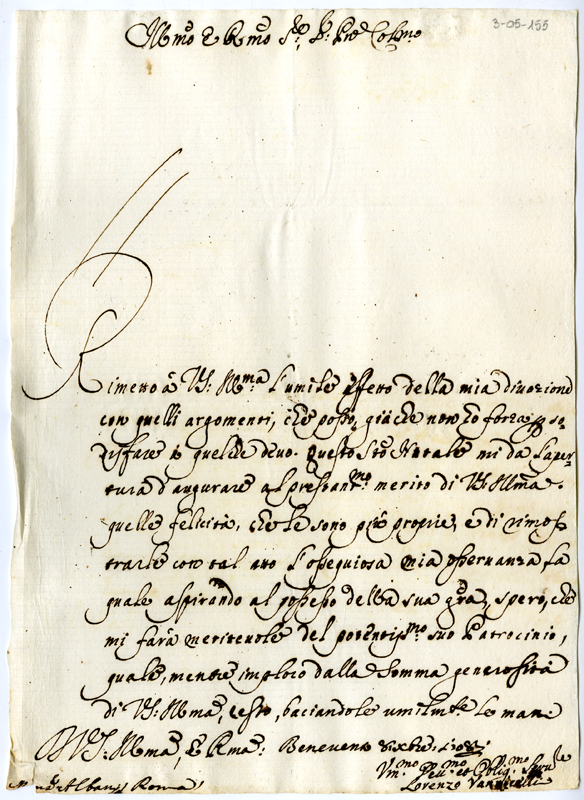 3-05-155
Illmo e Rmo Sr. Pne Colmo
Rimetto à V.S. Illma l'umile affetto della mia divozione
con quelli argomenti, che posso, già che non hò forza p so-
disfare à quel che devo. Questo Sto Natale mi dà l'aper-
tura d'augurare al prestantmo merito di V.S. Illma
quelle felicità, che le sono più proprie, e di dimos-
trarle con tal atto l'ossequiosa mia osservanza, la
quale aspirando al possesso della sua gra, spero, che
mi farà meritevole del potentissmo suo Patrocinio,
quale, mentre imploro dalla somma generosità
di V.S. Illma, resto, baciandole umilmte le mani
D V.S. Illma, e Rma: Benevento
Vmo Devmo et Obligmo Servre
Lorenzo
Albani Roma